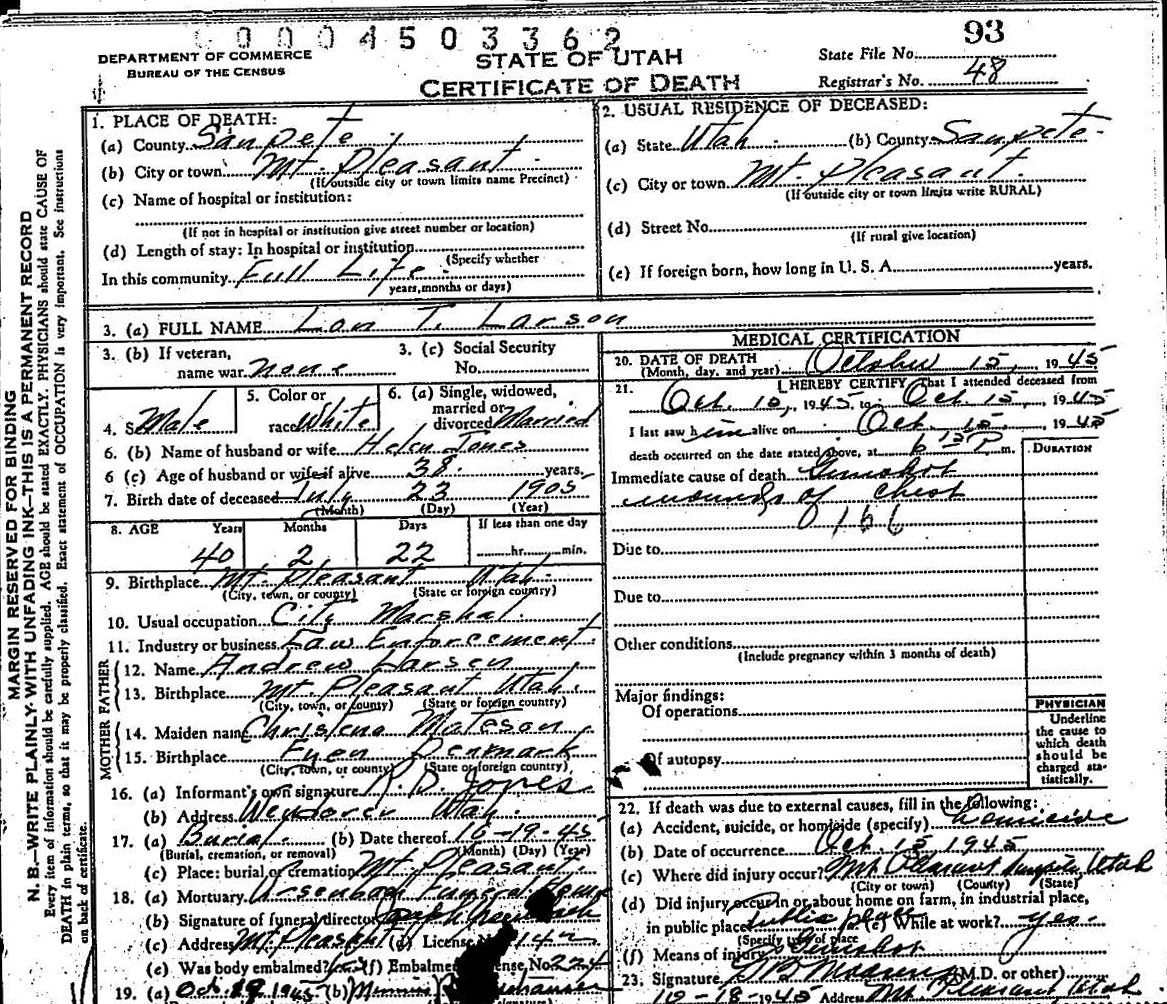 0004503362
93
DEPARTMENT OF COMMERCE
BUREAU OF THE CENSUS
STATE OF UTAH
CERTIFICATE OF DEATH
State File No.
Registrar's No. 48
MARGIN RESERVED FOR BINDING
N. B.—WRITE PLAINLY WITH UNFADING INK—THIS IS A PERMANENT RECORD
Every item of information should be carefully supplied. AGE should be stated EXACTLY. PHYSICIANS should state CAUSE OF
DEATH in plain terms, so that it may be properly classified. Exact statement of OCCUPATION is very important. See instructions
on back of certificate.
1. PLACE OF DEATH:
(a) County Sanpete
(b) City or town Mt. Pleasant
(If outside city or town limits name Precinct)
(c) Name of hospital or institution:
(If not in hospital or institution give street number or location)
(d) Length of stay: In hospital or institution
(Specify whether
In this community Full Life
years, months or days)
2. USUAL RESIDENCE OF DECEASED:
(a) State Utah (b) County Sanpete
(c) City or town Mt. Pleasant
(If outside city or town limits write RURAL)
(d) Street No.
(If rural give location)
(e) If foreign born, how long in U. S. A. years.
3. (a) FULL NAME Lon T. Larson
3. (b) If veteran,
name war none
3. (c) Social Security
No.
4. S Male
5. Color or
race White
6. (a) Single, widowed,
married or
divorced Married
6. (b) Name of husband or wife Helen Jones
6 (c) Age of husband or wife if alive 38 years.
7. Birth date of deceased July 23 1905
(Month) (Day) (Year)
8. AGE Years Months Days If less than one day
40 2 22 hr. min.
9. Birthplace Mt. Pleasant Utah
(City, town, or county) (State or foreign country)
10. Usual occupation City Marshal
11. Industry or business Law Enforcement
FATHER
12. Name Andrew Larsen
13. Birthplace Mt. Pleasant Utah
(City, town, or county) (State or foreign country)
MOTHER
14. Maiden name Christena Mateson
15. Birthplace Fyen Denmark
(City, town, or county) (State or foreign country)
16. (a) Informant's own signature R. D. Jones
(b) Address Wendover Utah
17. (a) Burial (b) Date thereof 10-19-45
(Burial, cremation, or removal) (Month) (Day) (Year)
(c) Place: burial or cremation Mt. Pleasant
18. (a) Mortuary Ursenbach Funeral Home
(b) Signature of funeral director
(c) Address Mt Pleasant (d) License No. 142
(e) Was body embalmed? yes (f) Embalmer License No. 224
19. (a) Oct 1945 (b)
MEDICAL CERTIFICATION
20. DATE OF DEATH October 15, 1945
(Month, day, and year)
21. I HEREBY CERTIFY That I attended deceased from
Oct. 15, 1945 to Oct. 15, 1945
I last saw him alive on Oct. 15, 1945
death occurred on the date stated above, at 6 15 P m.
DURATION
Immediate cause of death Gunshot
wounds of chest
166
Due to
Due to
Other conditions
(Include pregnancy within 3 months of death)
Major findings:
Of operations
Of autopsy
PHYSICIAN
Underline
the cause to
which death
should be
charged sta-
tistically.
22. If death was due to external causes, fill in the following:
(a) Accident, suicide, or homicide (specify) homicide
(b) Date of occurrence Oct. 15, 1945
(c) Where did injury occur? Mt. Pleasant Sanpete Utah
(City or town) (County) (State)
(d) Did injury occur in or about home on farm, in industrial place,
in public place public place (e) While at work? yes
(Specify type of place
(f) Means of injury Gunshot
23. Signature (M.D. or other)
10-18-1945 Address Mt Pleasant Utah